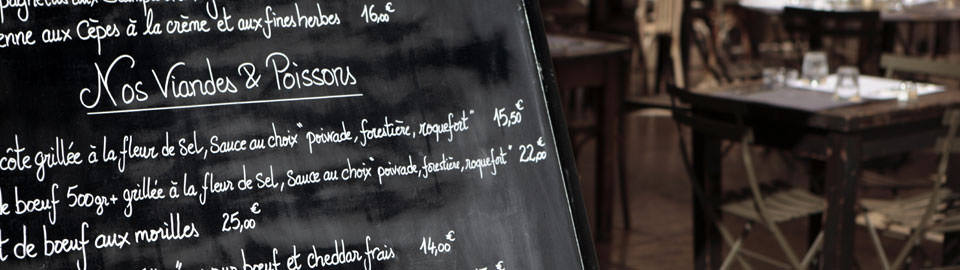 enne aux Cèpes à la crème et aux fines herbes 16,00€
Nos Viandes & Poissons
côte grillée à la fleur de sel, Sauce au choix "poivrade, forestière, roquefort" 15,50€
e boeuf 500gr+ grillée à la fleur de sel, sauce au choix "poivrade, forestière, roquefort" 22,00€
t de boeuf aux morilles 25,00€
boeuf et cheddar frais 14,00€